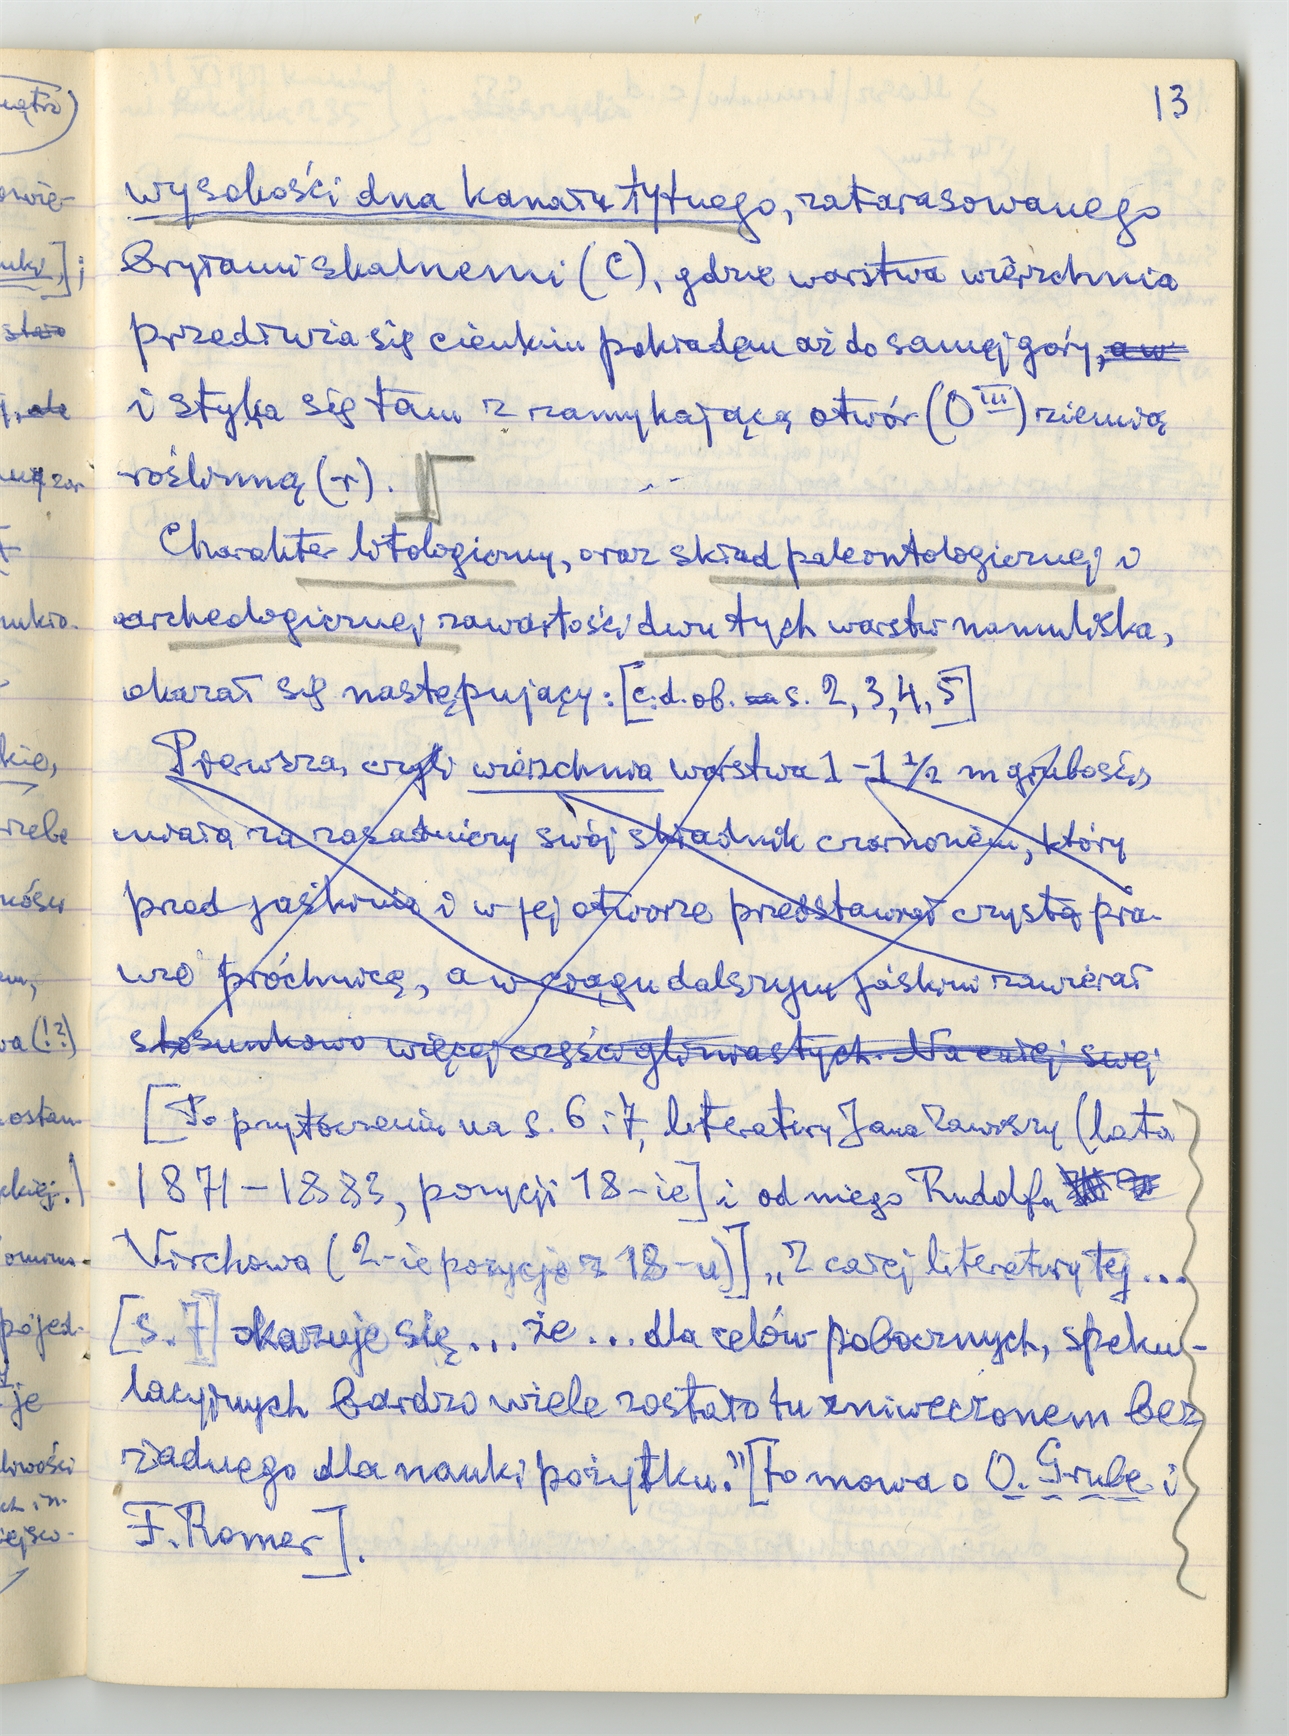 13
wysokości dna kanału tylnego, zatarasowanego
bryłami skalnemi (C), gdzie warstwa wiérzchnia
przedłuża się cienkim pokładem aż do samej góry, a w
i styka się tam z zamykającą otwór (O III) ziemią
roślinną (r).
Charakter litologiczny, oraz skład paleontologicznej i
archeologicznej zawartości dwu tych warstw namuliska,
okazał się następujący: [c.d. ob. na s. 2, 3, 4, 5]
Piérwsza, czyli wiérzchnia warstwa 1 - 1 1/2 m grubości,
miała za zasadniczy swój składnik czarnoziém, który
pred jaskinią i w jej otworze przedstawiał czystą pra-
wie próchnicę, a w ciągu dalszym jaskini zawiérał
stosunkowo więcej części gliniastych. Na całej swej
[Po przytoczeniu na s. 6 i 7, literatury Jana Zawiszy (lata
1871-1883, pozycji 18-ie] i od niego Rudolfa
Virchowa (2-ie pozycje z 18-u)] „Z całej literatury tej ...
[s. 7] okazuje się ... że ... dla celów pobocznych, speku-
lacyjnych bardzo wiele zostało tu zniweczonem bez
żadnego dla nauki pożytku." [to mowa o O. Grube i
F. Römer].
owie-
nuki];
stao
j, ale
nukro.
kie,
rzebe
ności
wa (!?)
ostan-
ckiej.)
pojed-
je
liwości